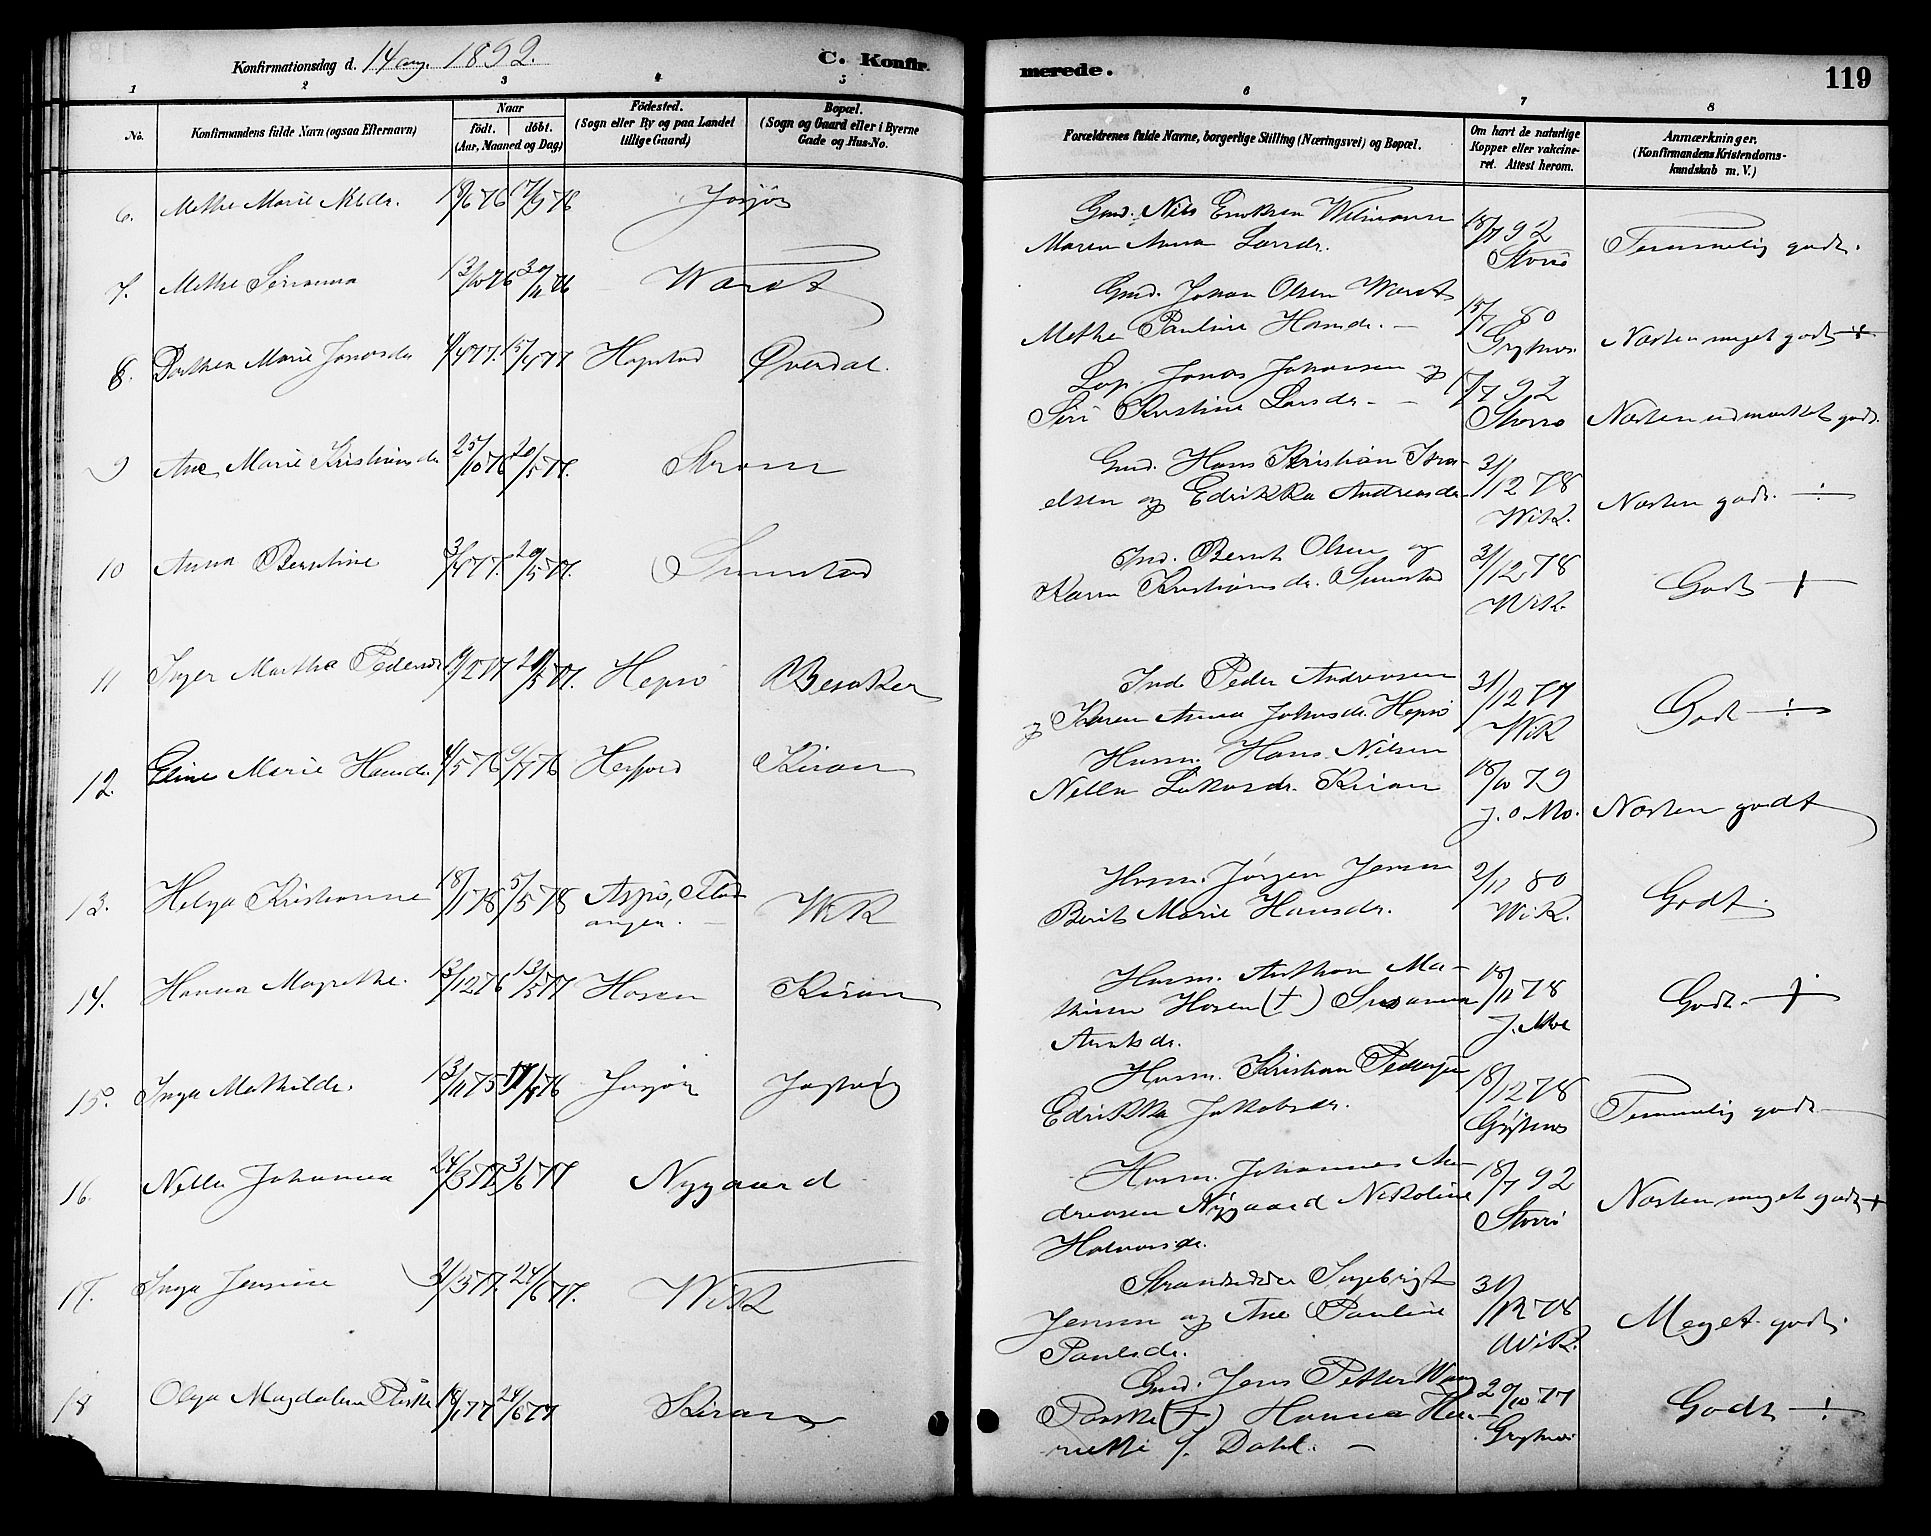 Konfirmationsdag d. 14 aug. 1892.
C. Konfir-
merede.
119
1 2 3 4 5 6 7 8
No.
Konfirmandens fulde Navn (ogsaa Efternavn)
Naar
födt. döbt.
(Aar, Maaned og Dag)
Födested.
(Sogn eller By og paa Landet
tillige Gaard)
Bopæl.
(Sogn og Gaard eller i Byerne
Gade og Hus-No.
Forældrenes fulde Navne, borgerlige Stilling (Næringsvei) og Bopæl.
Om havt de naturlige
Kopper eller vakcine-
ret. Attest herom.
Anmærkninger.
(Konfirmandens Kristendoms-
kundskab m. V.)
6. Methe Marie Nilsdr. 18/6 76 17/9 76
Gmd. Nils
Maren Anna Larsdr.
18/7 92
Storrö
Temmelig godt.
7. Methe 13/10 76 30/11 76 Warøt
Gmd. Johan Olsen Warøt
Methe Pauline Hansdr. -
15/7 80
Næsten meget godt +
8. Dorthea Marie Jonasdr 4/4 77. 15/4 77 Hopstad Øverdal.
Jonas Johansen og
Siri Kristine Larsdr. -
17/7 92
Storrö
Næsten udmærket godt.
9 Ane Marie Kristiansdr 25/10 76 20/5 77. Strøm
Gmd. Hans Kristian Isra-
elsen og Edrikka Andreasdr
31/12 78
Wik.
Næsten godt. ÷
10 Anna Berntine 3/4 77. 20/5 77. Sumstad
Ind. Bernt Olsen og
Karen Kristiansdr. Sumstad
31/12 78
Wik.
Godt +
11 Inger Martha Pedersdr 9/2 77 20/5 77. Hepsö Besaker
Ind. Peder Andreasen
og Karen Anna Johnsdr. Hepsö
31/12 77
Wik
Godt ÷
12. Eline Marie Hansdr. 4/5 76 9/7 76 Herfjord Kiran
Husm. Hans Nilsen
Nella Kiran
18/10 79
J. O. Mo.
Næsten godt
13. Helga Kristianne 18/1 78 5/5 78 Aspö, Flat-
anger. - Wik
Husm. Jørgen Jensen
Berit Marie Hansdr.
2/11 80
Wik.
Godt.
14. Hanna Magrethe. 13/12 76 13/5 77 Hosen Kiran
Husm. Anthon Ma-
thisen Hosen (†) Susanna
18/11 78
J. Moe
Godt. +
15. Inga Mathilde. 13/11 75
Husm. Kristian Pedersen
Edrikka Jakobsdr.
18/12 78
Temmelig godt
16. Nella Johanna 24/3 77. 3/6 77 Nygaard
Husm. Johannes An-
dreasen Nygaard Nikoline
Halvorsdr.
18/7 92
Storrö
Næsten meget godt +
17. Inga Jensine 31/3 77. 24/6 77. Wik
Strandsidder Ingebrigt
Jensen og Ane Pauline
Paulsdr.
31/12 78
Wik.
Meget godt.
18 Olga Magdalene 18/1 77 24/6 77 Kiran
Gmd. Jens Petter
(†) Hanna Hen-
f. Dahl. -
20/10 77
Godt ÷